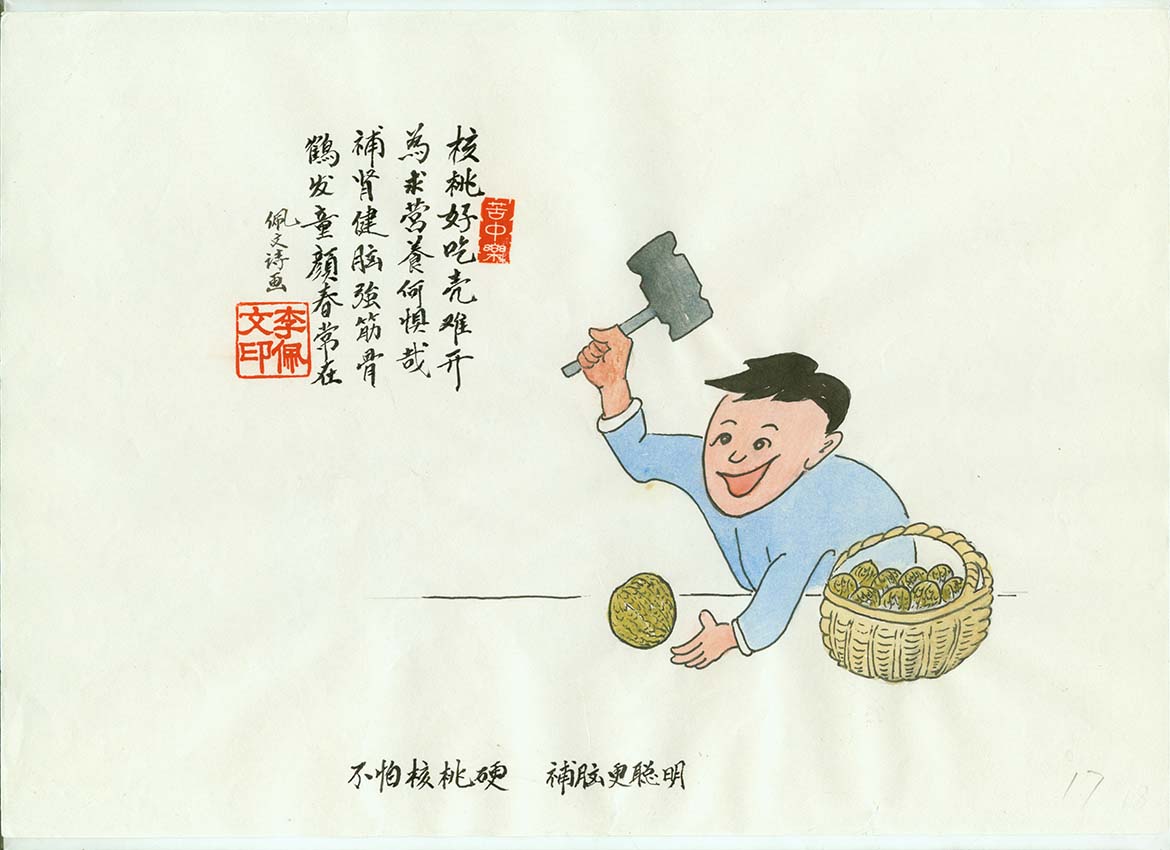 核桃好吃壳难开
為求营養何惧哉
補肾健脑強筋骨
鶴发童顔春常在
佩文诗画
苦中樂
李佩文印
不怕核桃硬 補脑更聪明
17